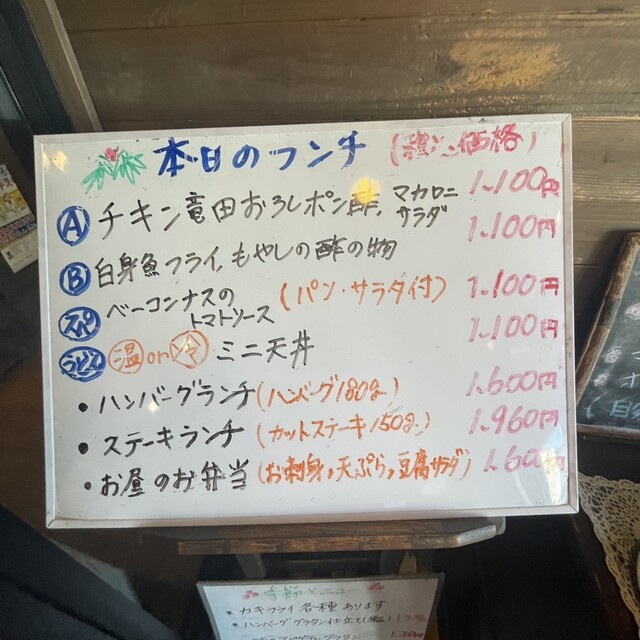 本日のランチ (税込価格)
Ⓐ チキン竜田おろしポン酢、マカロニサラダ 1.100円
Ⓑ 白身魚フライ、もやしの酢の物 1.100円
スパ ベーコンナスのトマトソース (パン・サラダ付) 1.100円
うどん 温or冷 ミニ天丼 1.100円
・ハンバーグランチ(ハンバーグ180g) 1.600円
・ステーキランチ(カットステーキ150g) 1.960円
・お昼のお弁当(お刺身、天ぷら、豆腐サラダ) 1.60円
季節メニュー
・カキフライ各種あります
・ハンバーググラタン仕立て